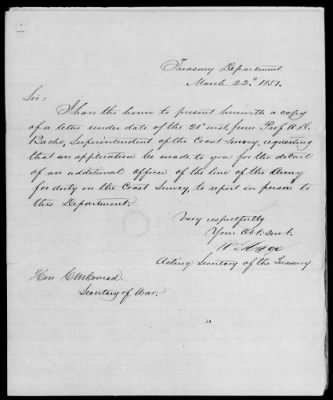 Treasury Department
March 22d. 1851.
Sir:
I have the honor to present herewith a copy
of a letter under date of the 20' inst. from Prof A. D.
Bache, Superintendent of the Coast Survey, requesting
that an application be made to you for the detail
of an additional officer of the line of the Army
for duty on the Coast Survey, to report in person to
this Department.
Very respectfully
Your Obt. Servt.
Acting Secretary of the Treasury
Hon C M Conrad
Secretary of War.